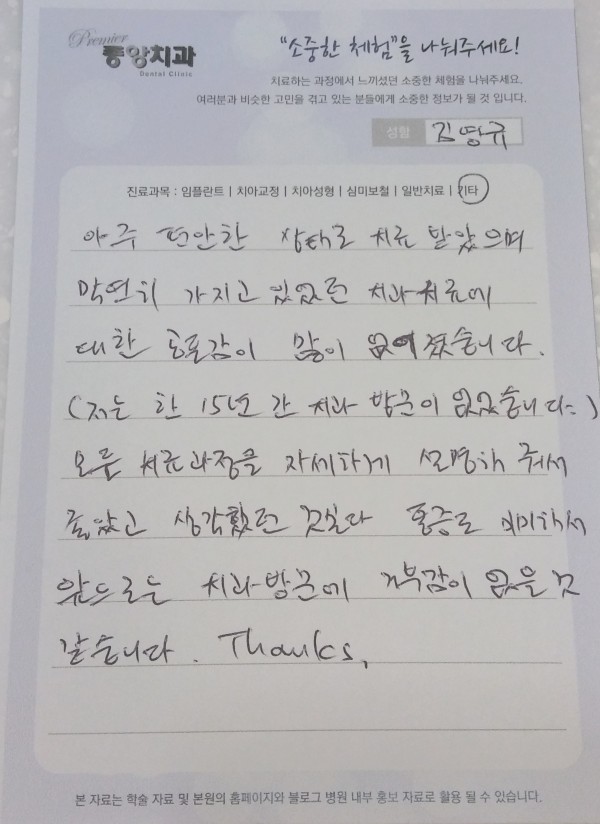 Premier
중앙치과
Dental Clinic
"소중한 체험"을 나눠주세요!
치료하는 과정에서 느끼셨던 소중한 체험을 나눠주세요.
여러분과 비슷한 고민을 겪고 있는 분들에게 소중한 정보가 될 것 입니다.
성함 김영규
진료과목 : 임플란트 | 치아교정 | 치아성형 | 심미보철 | 일반치료 | 기타
아주 편안한 상태로 치료 받았으며
막연히 가지고 있었던 치과치료에
대한 공포감이 많이 없어졌습니다.
(저는 한 15년 간 치과 방문이 없었습니다.)
모든 치료과정을 자세하게 설명해 줘서
좋았고 생각했던 것보다 통증도 미미해서
앞으로는 치과방문에 거부감이 없을 것
같습니다. Thanks,
본 자료는 학술 자료 및 본원의 홈페이지와 블로그 병원 내부 홍보 자료로 활용 될 수 있습니다.